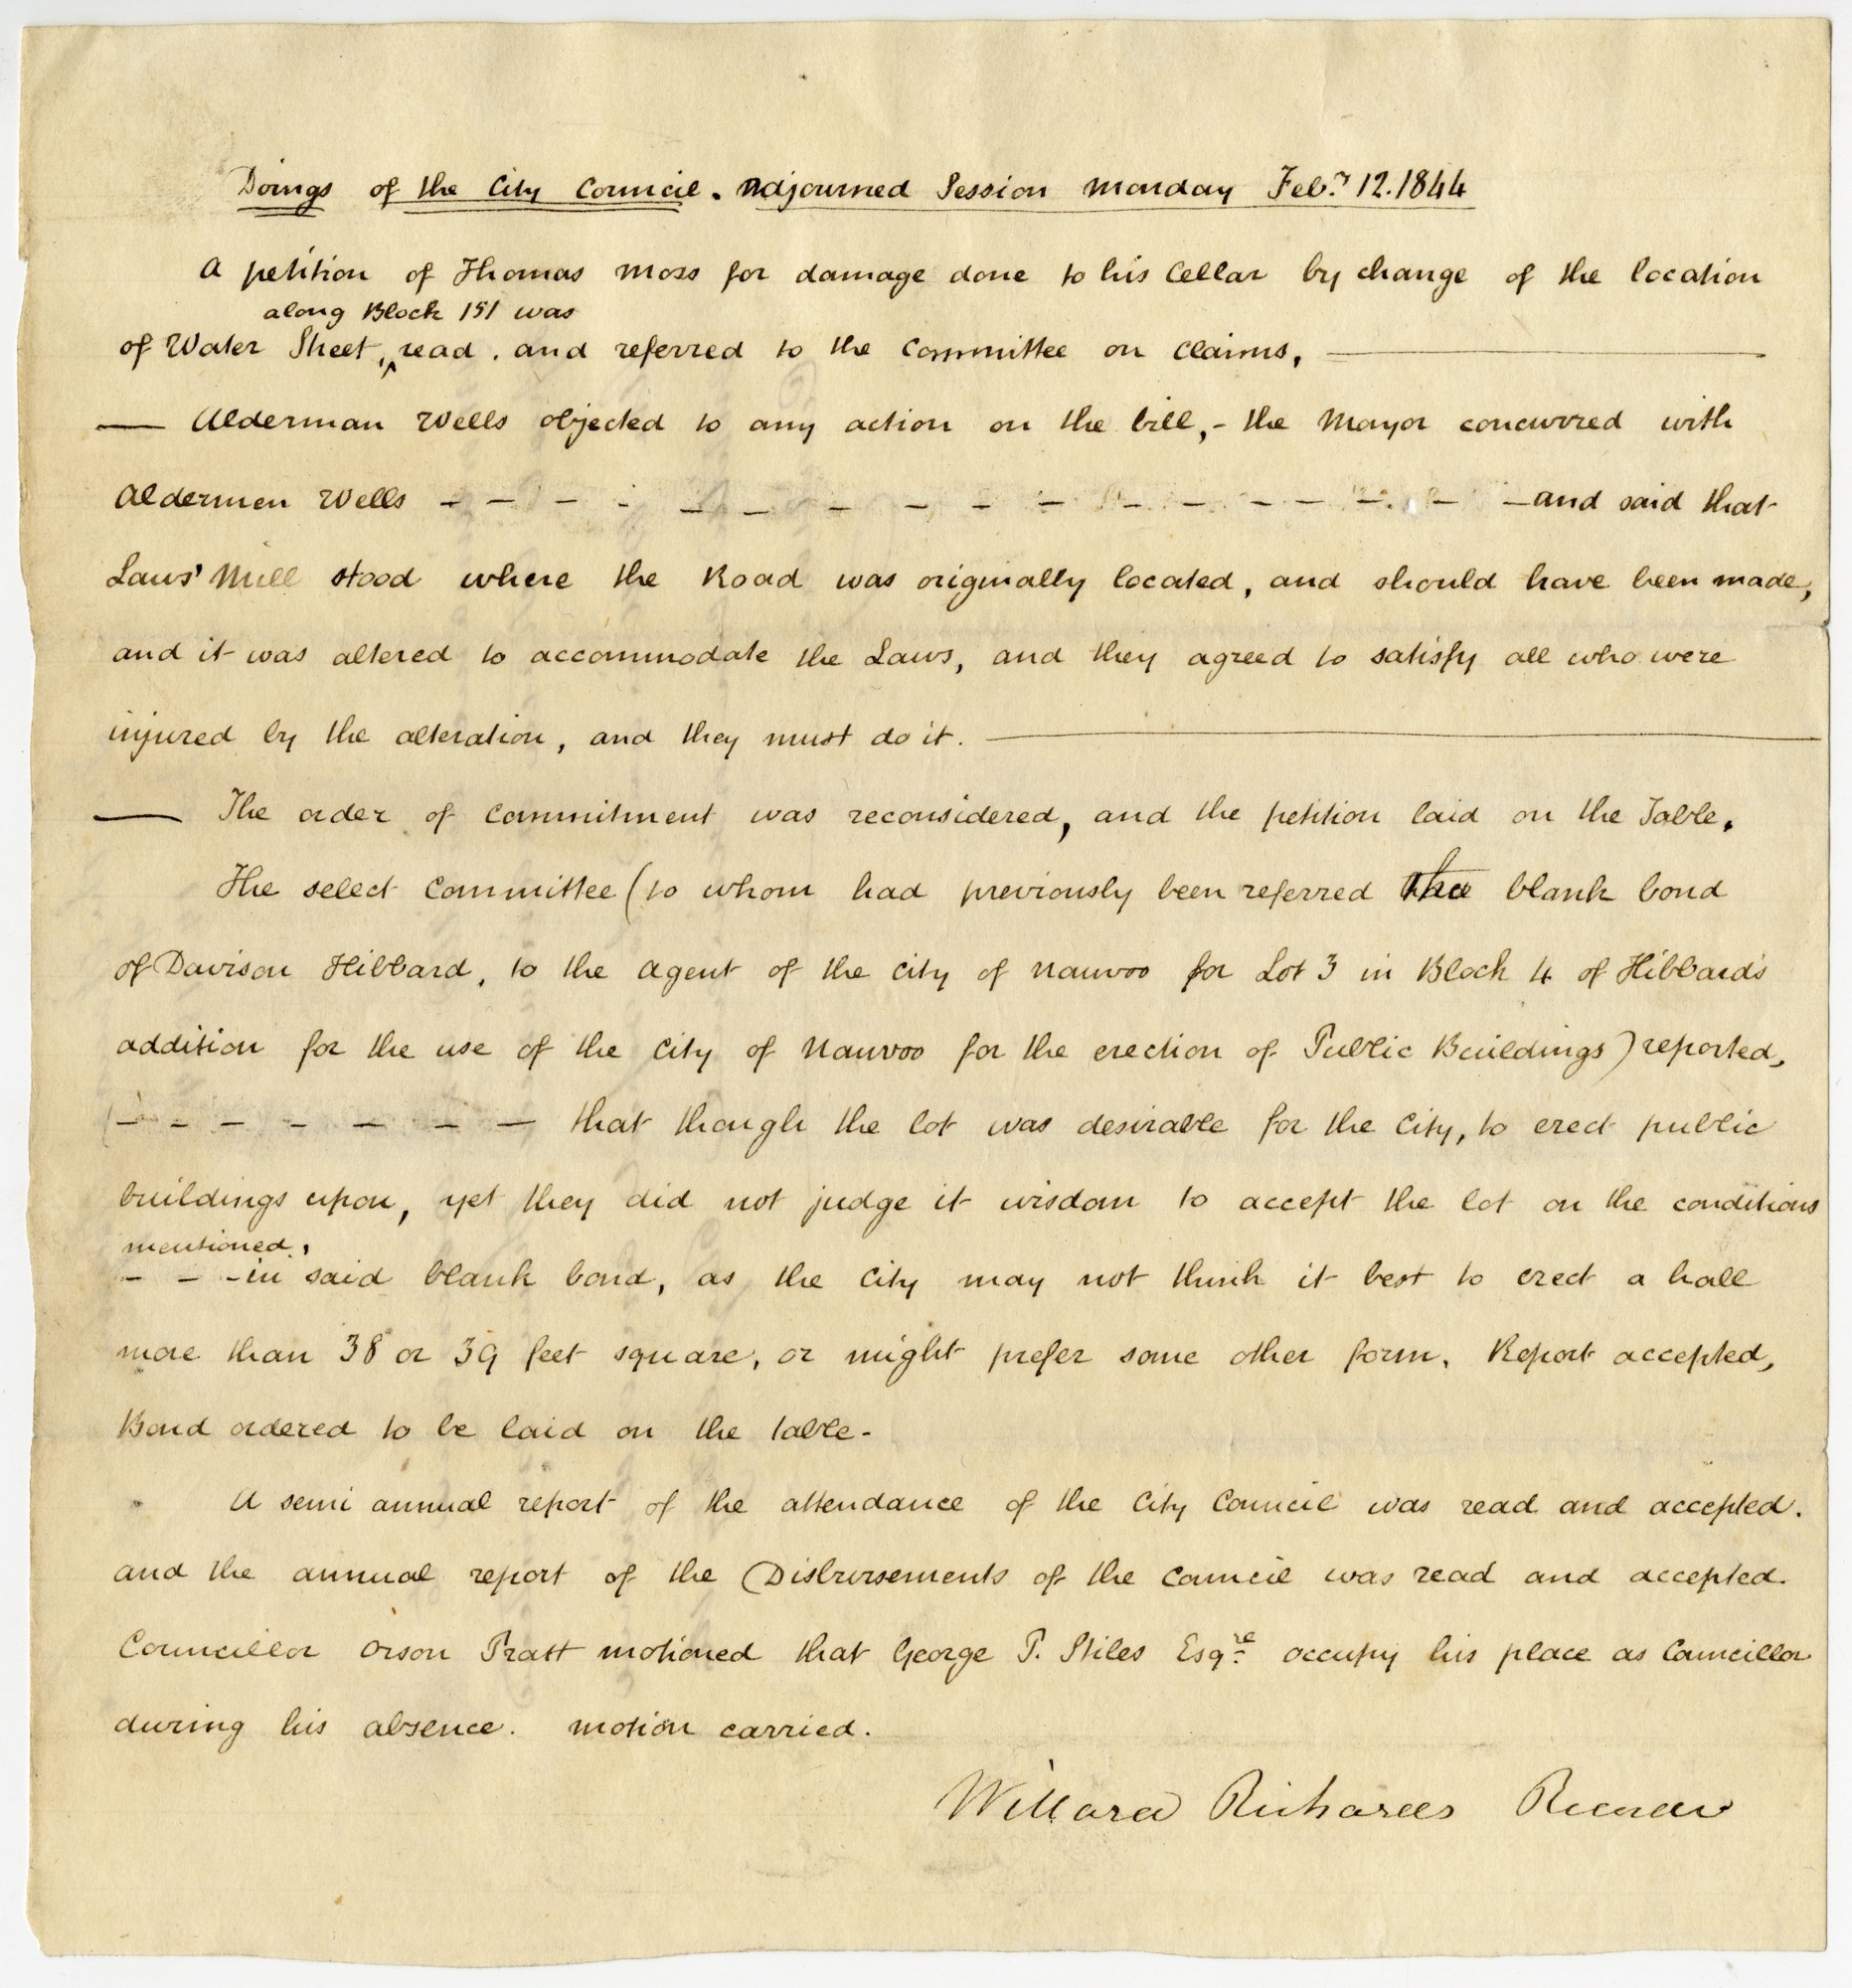 Doings of the City Council. Adjourned Session Monday Feby 12. 1844
A petition of Thomas Moss for damage done to his Cellar by change of the location
along Block 151 was
of Water Street, ^ read. and referred to the Committee on Claims,
— Alderman Wells objected to any action on the bill, - the Mayor concurred with
Aldermen Wells - - - - - - - - - - - - - - - - and said that
Laws' Mill stood where the Road was originally located, and should have been made,
and it was altered to accommodate the Laws, and they agreed to satisfy all who were
injured by the alteration, and they must do it. —
— The order of commitment was reconsidered, and the petition laid on the Table.
The select Committee (to whom had previously been referred the blank bond
of Davison Hibbard, to the Agent of the City of Nauvoo for Lot 3 in Block 4 of Hibbard's
addition for the use of the City of Nauvoo for the erection of Public Buildings) reported,
- - - - - - - that though the lot was desirable for the City, to erect public
buildings upon, yet they did not judge it wisdom to accept the lot on the conditions
mentioned,
- - - in said blank bond, as the City may not think it best to erect a hall
more than 38 or 39 feet square, or might prefer some other form. Report accepted,
Bond ordered to be laid on the table -
A semi annual report of the attendance of the City Council was read and accepted.
and the annual report of the Disbursements of the Council was read and accepted.
Councillor Orson Pratt motioned that George P. Stiles Esqre occupy his place as Councillor
during his absence. motion carried.
Willard Richards Recorder